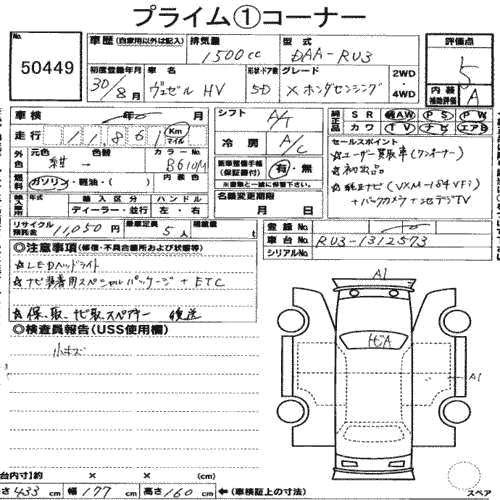 プライム①コーナー
No. 50449
車歴 (自家用以外は記入) 排気量 1500cc 型式 DAA-RU3
評価点 5
内装補助評価 A
初度登録年月 30/8月 車名 ヴェゼル HV 形状・ドア数 5D グレード X ホンダセンシング 2WD・4WD
車検 年 月
走行 11,861 Km マイル
シフト A/T
冷房 A/C
純正品 SR AW PS PW
カワ TV ナビ エアB
セールスポイント
☆ユーザー買取車(ワンオーナー)
☆初出品
☆純正ナビ(VXM-184VFi)
+バックカメラ+地デジTV
外色 元色 紺 → 色替 カラーNo. B610M
燃料 ガソリン・軽油・( ) 内装色
新車整備手帳(保証書付) 有・無
※書類と一緒に保管下さい
輸入車 年式 輸入区分 ハンドル
ディーラー・並行 左・右
名義変更期限
月 日
リサイクル預託金 11,050円 乗車定員 5人 積載量
登録No.
車台No. RU3-1312573
シリアルNo.
◎注意事項(修復・不具合箇所および状態等)
☆LEDヘッドライト
☆ナビ装着用スペシャルパッケージ+ETC
☆保、取、ナビ取、スペアキー 後送
◎検査員報告(USS使用欄)
小キズ
A1
A1
台内寸(約 × × (cm)
さ 433 cm 幅 177 cm 高さ 160 cm ←(車検証上の寸法)
スペア